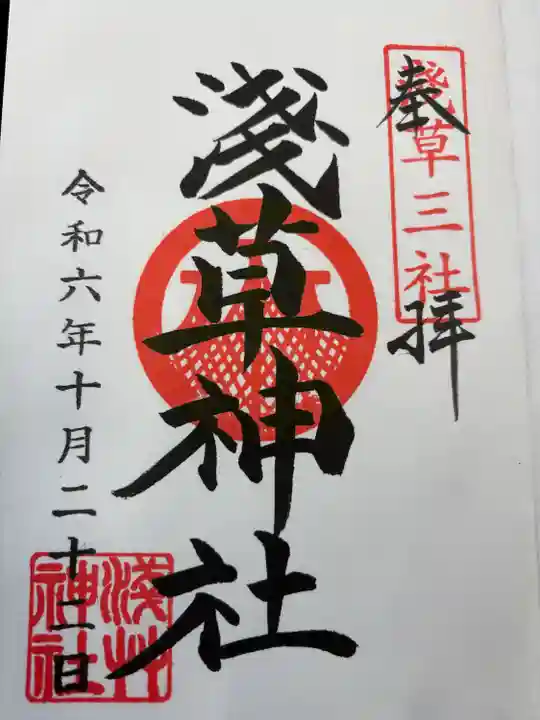 奉拝
淺草三社
淺草神社
令和六年十月二十二日
淺艸神社